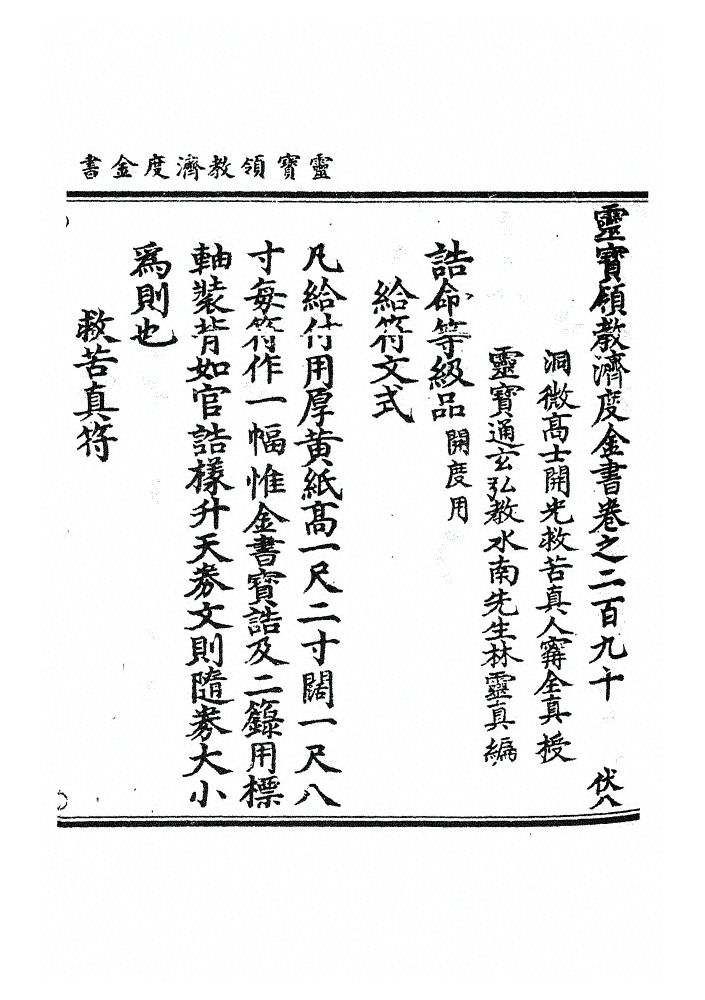 靈寶領教濟度金書
靈寶領教濟度金書卷之二百九十 伏八
洞微高士開光救苦真人寗全真授
靈寶通玄弘教水南先生林靈真編
誥命等級品 開度用
給符文式
凡給付用厚黃紙高一尺二寸闊一尺八
寸每符作一幅惟金書寶誥及二籙用標
軸裝背如官誥樣升天券文則隨券大小
爲則也
救苦真符